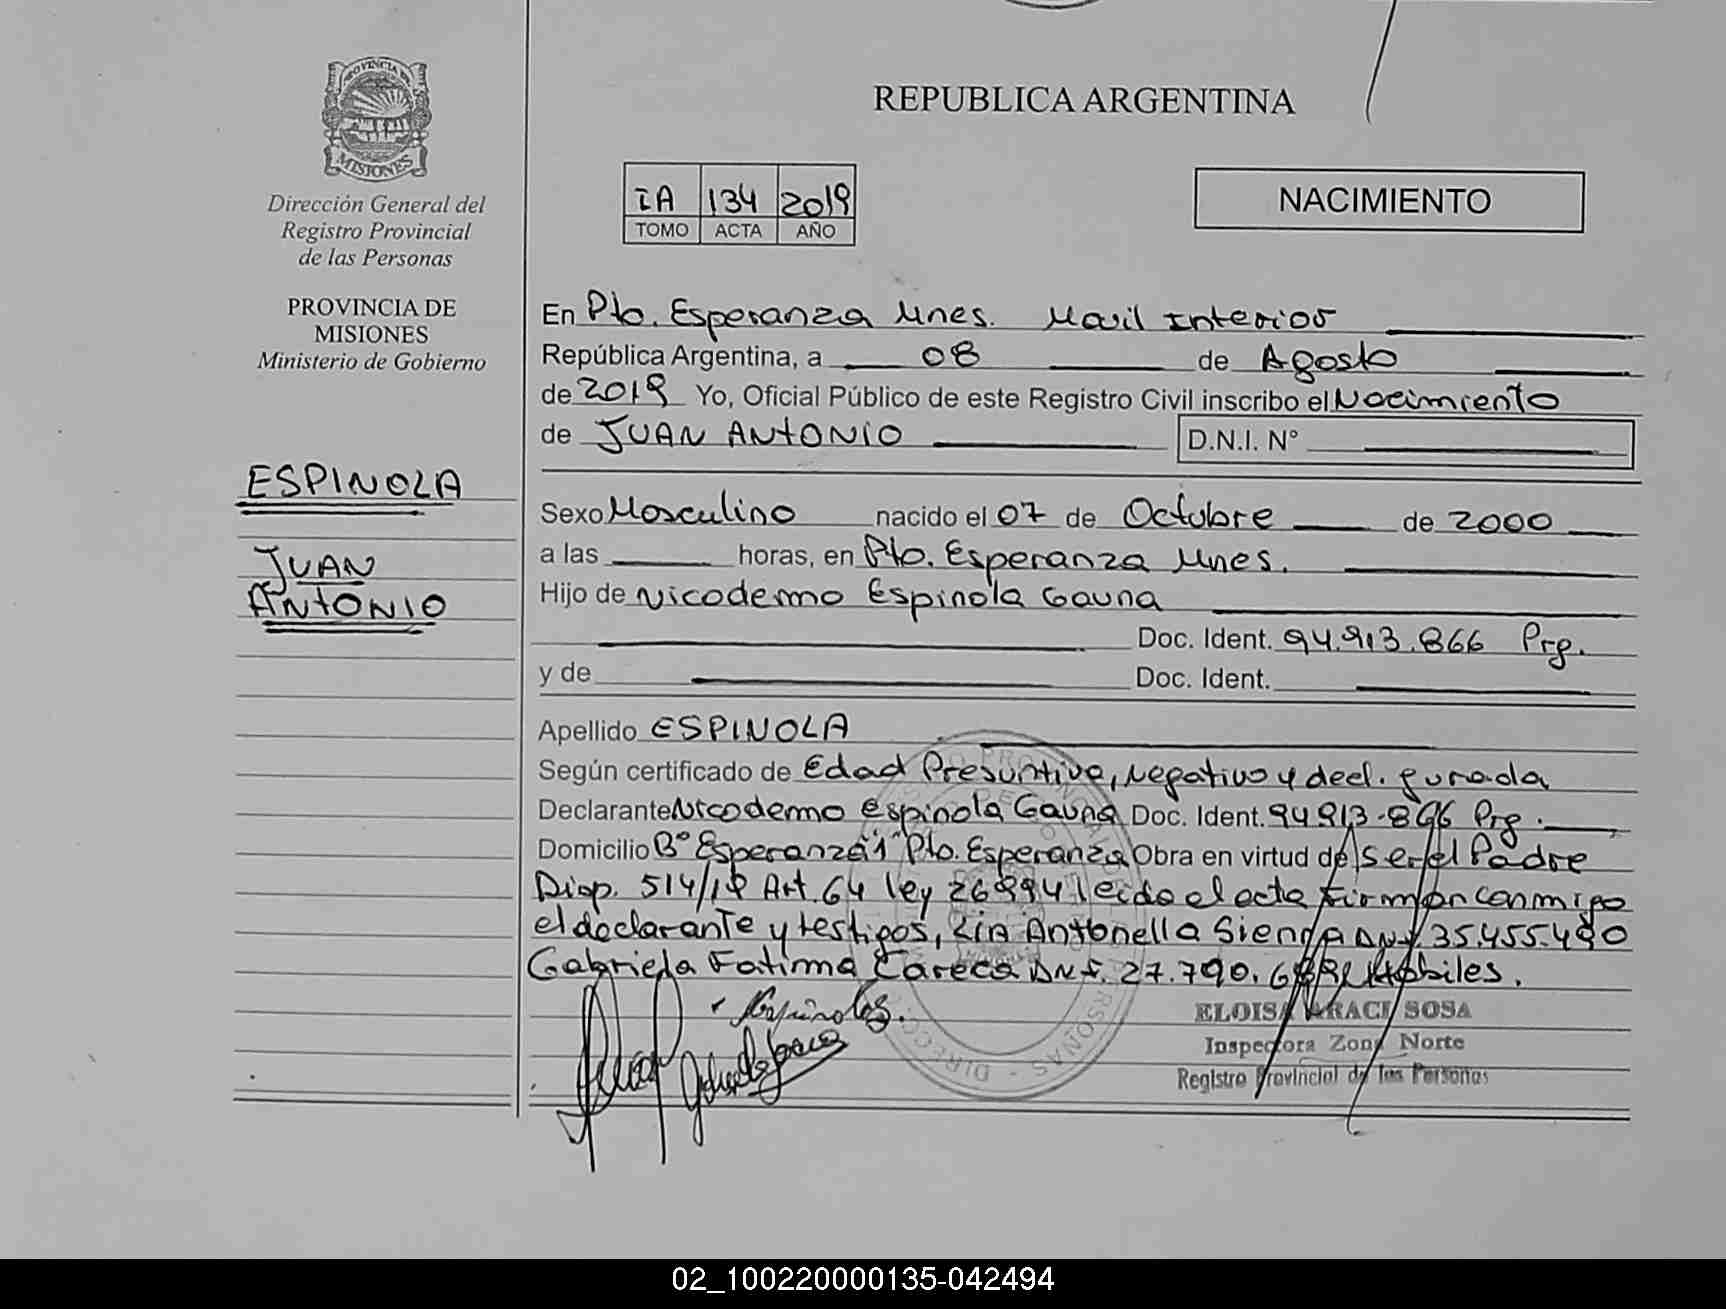 REPUBLICA ARGENTINA
PROVINCIA DE
MISIONES
Dirección General del
Registro Provincial
de las Personas
PROVINCIA DE
MISIONES
Ministerio de Gobierno
ESPINOLA
JUAN
ANTONIO
IA 134 2019
TOMO ACTA AÑO
NACIMIENTO
En Pto. Esperanza Mnes. Movil Interior
República Argentina, a 08 de Agosto
de 2019 Yo, Oficial Público de este Registro Civil inscribo el Nacimiento
de JUAN ANTONIO D.N.I. N°
Sexo Masculino nacido el 07 de Octubre de 2000
a las horas, en Pto. Esperanza Mnes.
Hijo de Nicodemo Espinola Gauna
Doc. Ident. 94.913.866 Prg.
y de Doc. Ident.
Apellido ESPINOLA
Según certificado de Edad Presuntiva, Negativo y decl. Jurada
Declarante Nicodemo Espinola Gauna Doc. Ident. 94913.866 Prg.
Domicilio B° Esperanza "1" Pto. Esperanza Obra en virtud de ser el Padre
Disp. 514/19 Art. 64 ley 26994 leido el acta Firman conmigo
el declarante y testigos, Lia Antonella Sienra DNI. 35.455.490
Gabriela Fatima Careca DNI. 27.790. Habiles.
Espinola.
ELOISA ARACI SOSA
Inspectora Zona Norte
Registro Provincial de las Personas
02_100220000135-042494